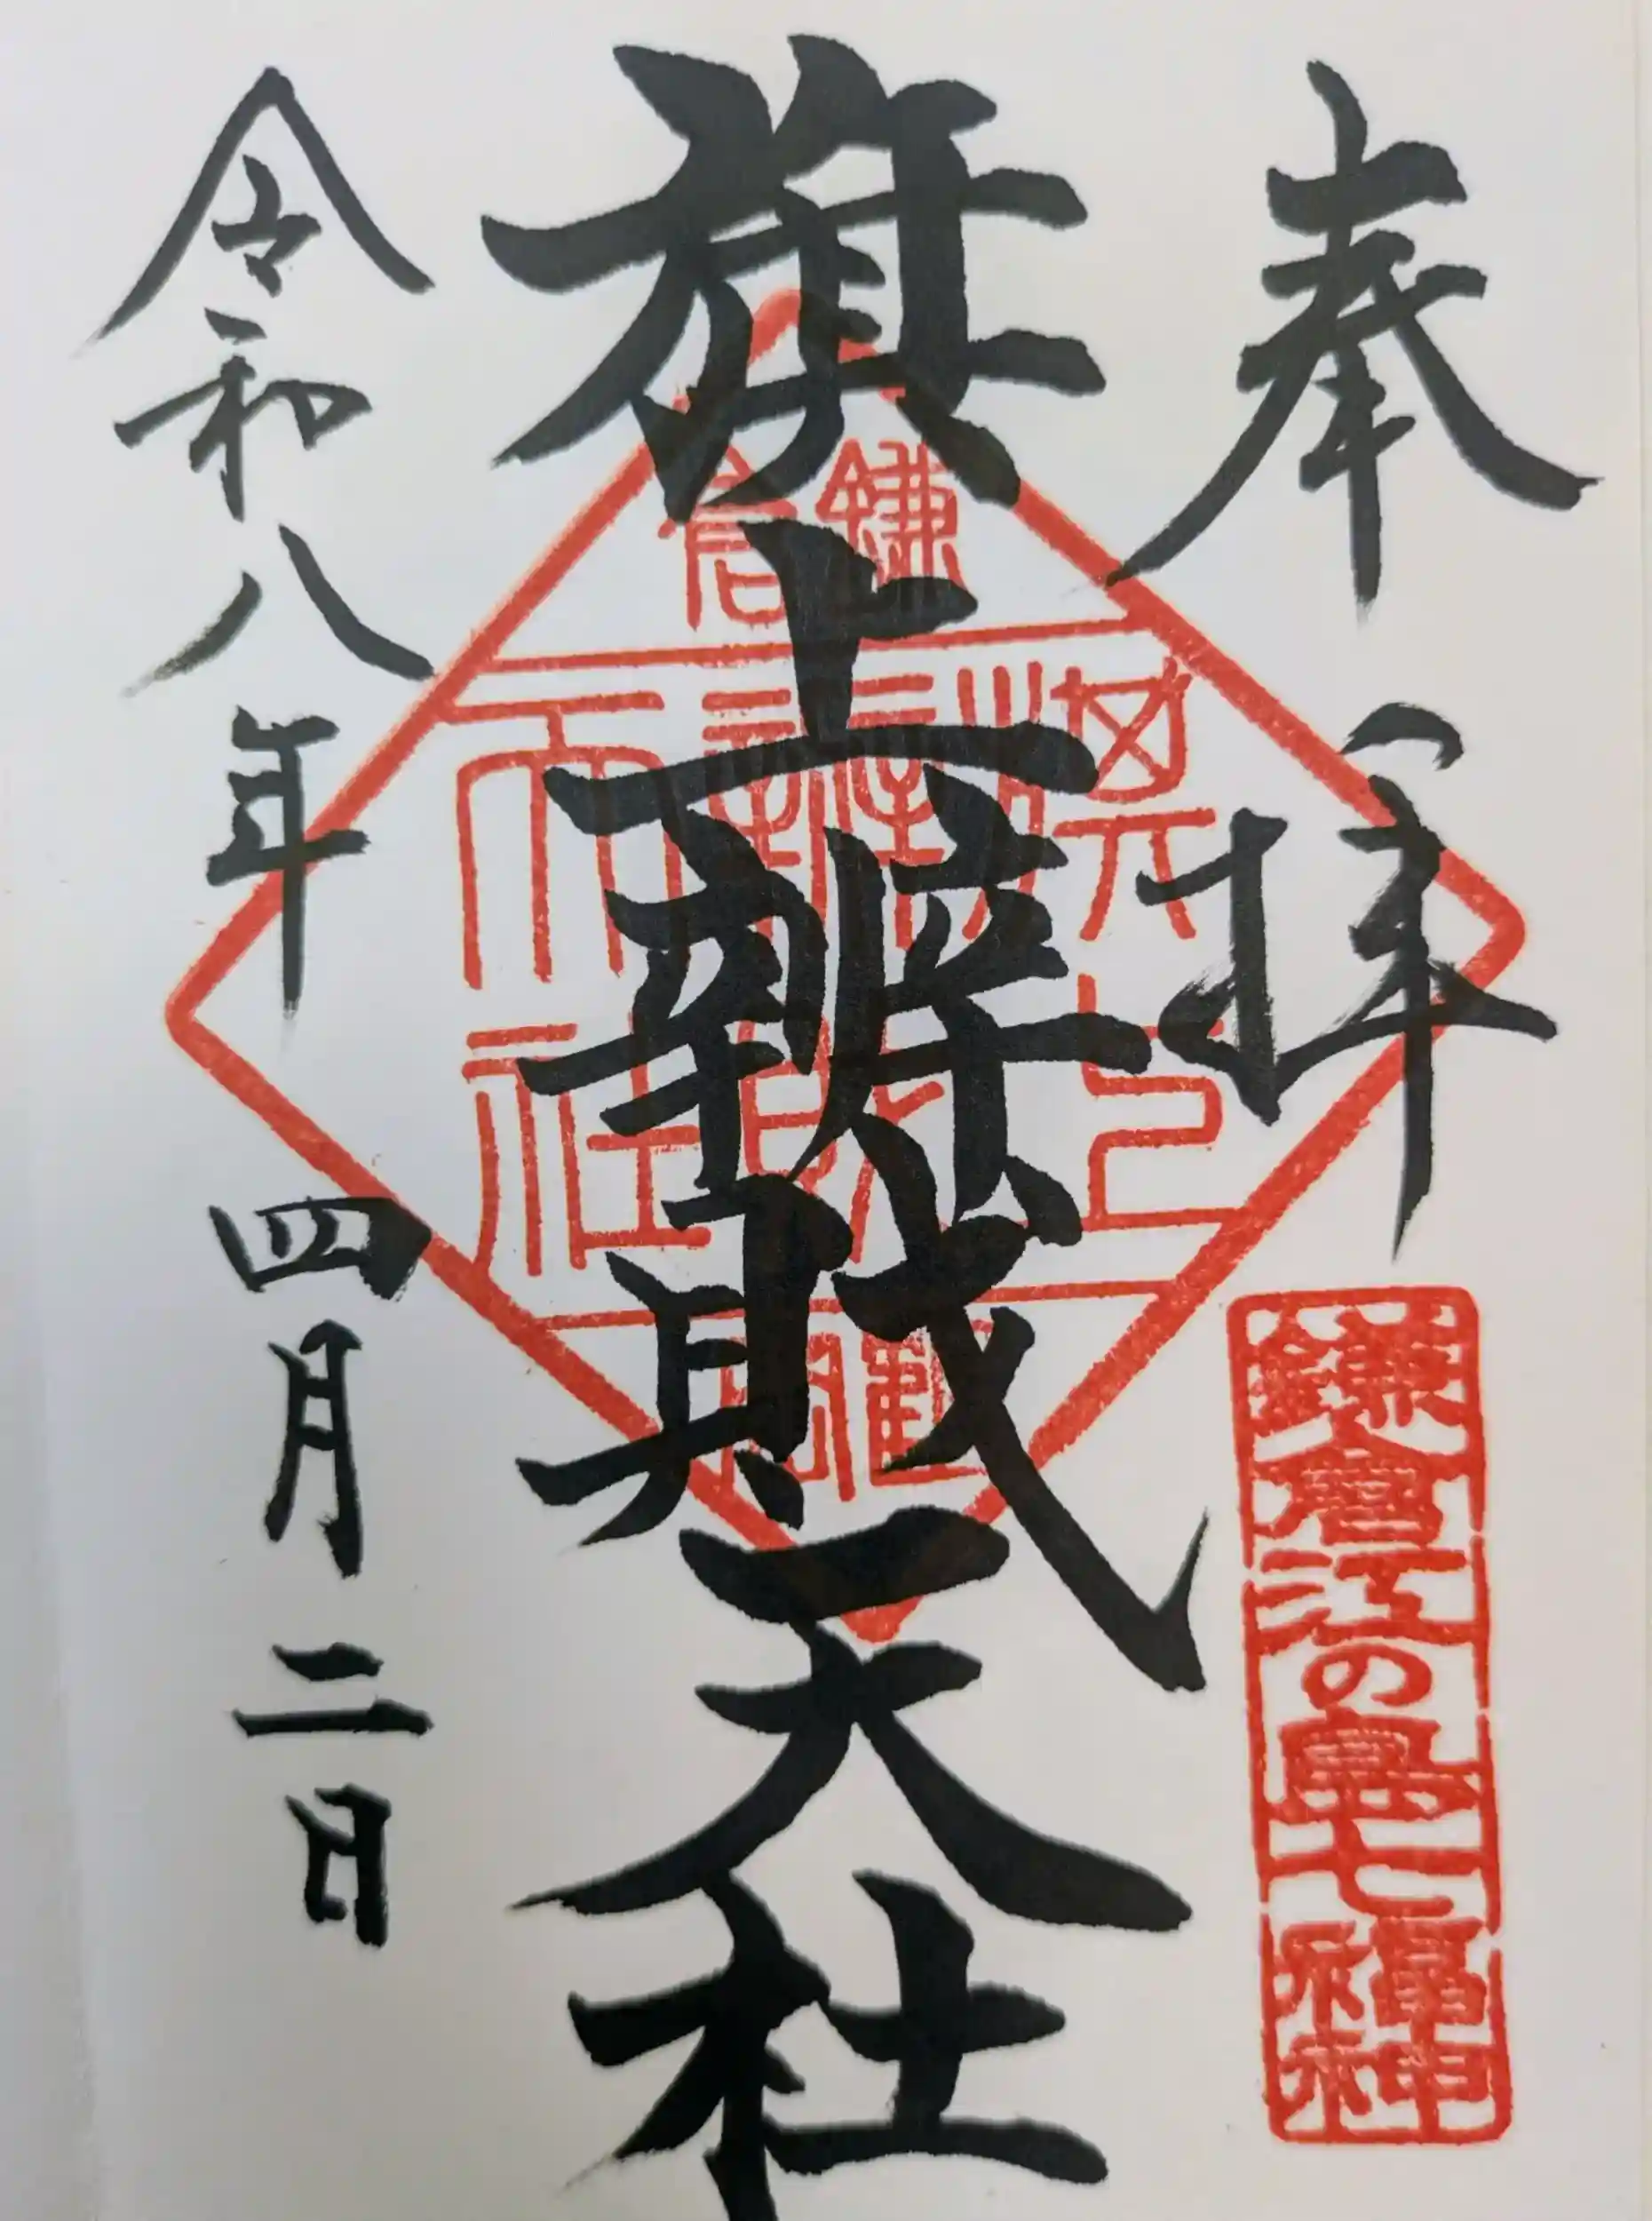 奉拝
鎌倉江の島七福神
旗上辨財天社
鎌倉
令和八年四月二日